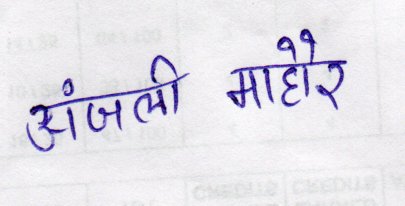 अंजली माहौर